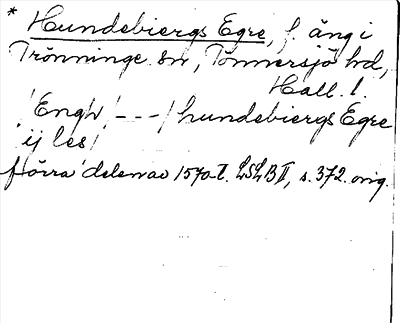 * Hundebiergs Egre, f. äng i
Trönninge sn, Tönnersjö hd,
Hall. l.
/Engh/ --- / hundebiergs Egre
ij les/
förra delen av 1570-t. LSLB II, s. 372. orig.